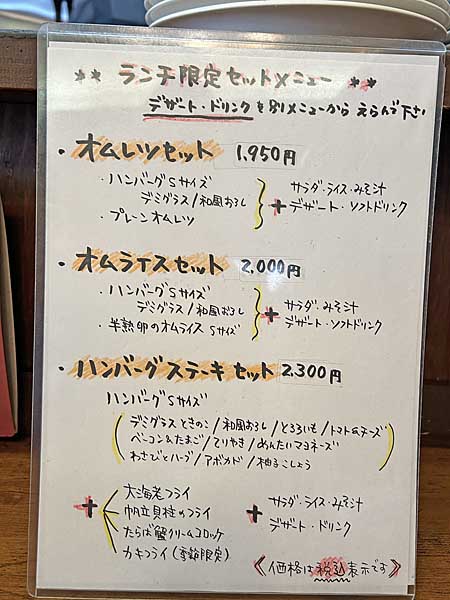 ** ランチ限定セットメニュー **
デザート・ドリンクを別メニューから えらんで下さい
・オムレツセット 1,950円
・ハンバーグSサイズ
デミグラス/和風おろし
・プレーンオムレツ
+ サラダ・ライス・みそ汁
デザート・ソフトドリンク
・オムライスセット 2,000円
・ハンバーグSサイズ
デミグラス/和風おろし
・半熟卵のオムライス Sサイズ
+ サラダ・みそ汁
デザート・ソフトドリンク
・ハンバーグステーキセット 2,300円
ハンバーグSサイズ
デミグラスときのこ/和風おろし/とろろいも/トマト&チーズ
ベーコン&たまご/てりやき/めんたいマヨネーズ
わさびとハーブ/アボカド/柚子こしょう
+ 大海老フライ
帆立貝柱のフライ
たらば蟹クリームコロッケ
カキフライ(季節限定)
+ サラダ・ライス・みそ汁
デザート・ドリンク
《価格は税込表示です》